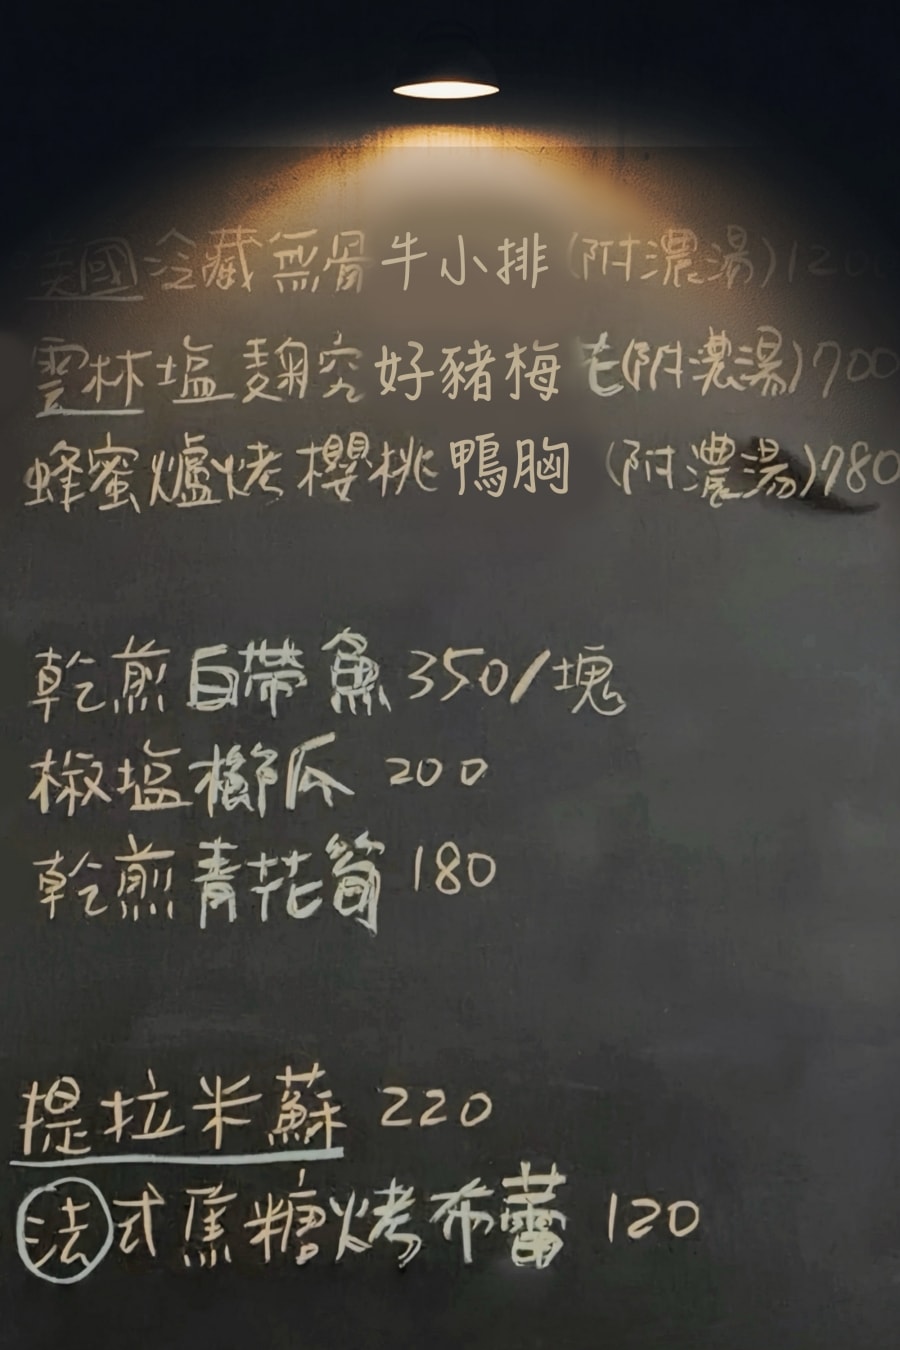 美國冷藏無骨牛小排(附濃湯)120
雲林塩麴究好豬梅(附濃湯)700
蜂蜜爐烤櫻桃鴨胸(附濃湯)780
乾煎白帶魚350/塊
椒塩櫛瓜 200
乾煎青花筍 180
提拉米蘇 220
法式焦糖烤布蕾 120